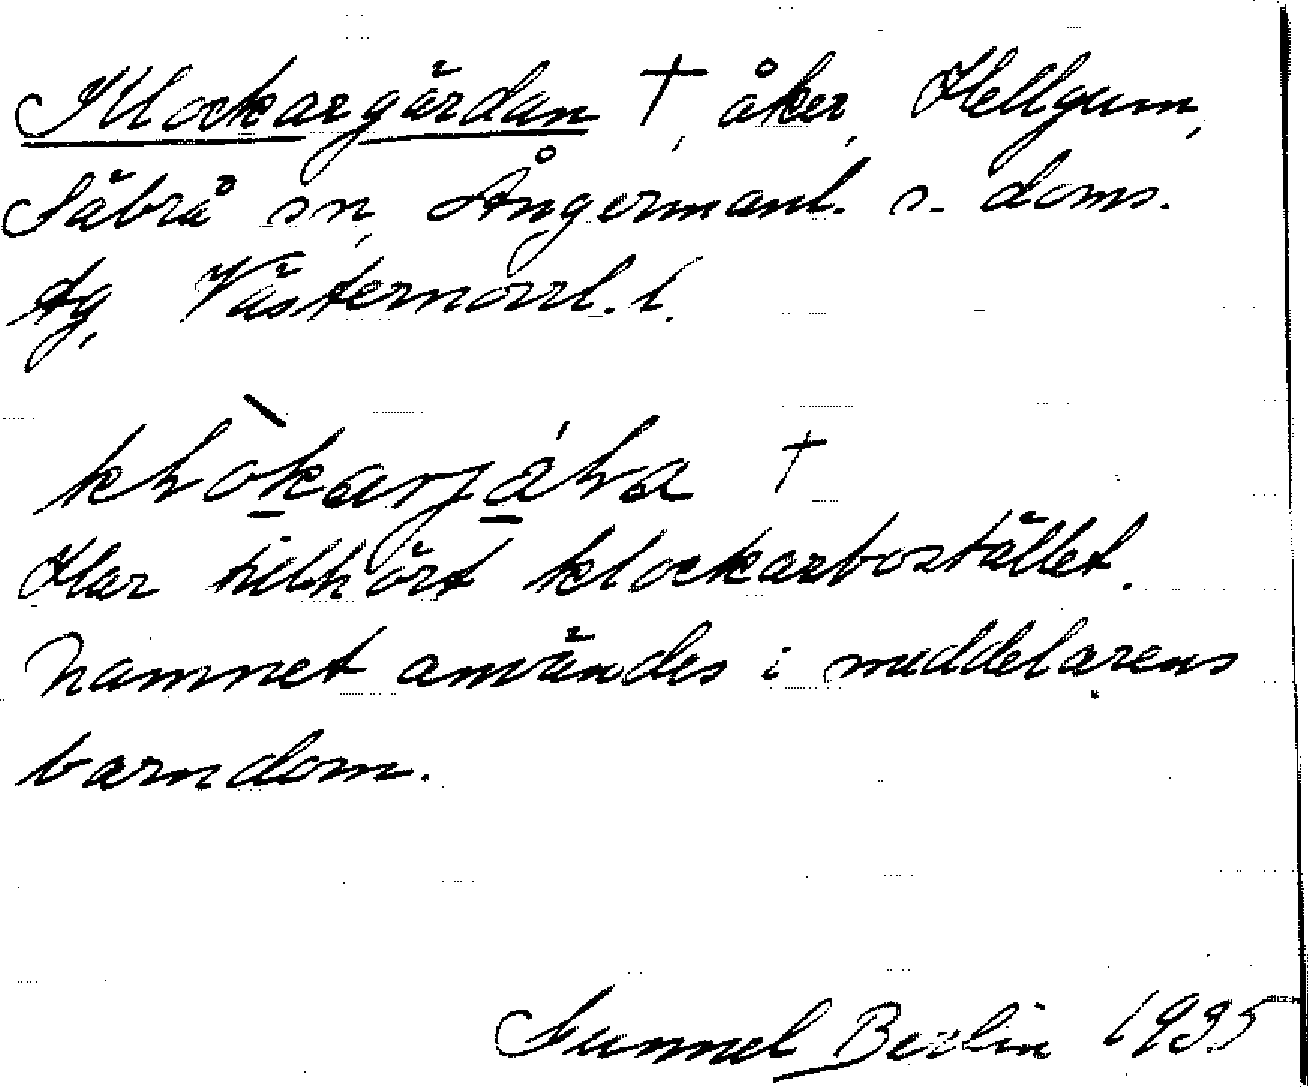 Klockargärdan †, åker, Hellgum,
Säbrå sn, Ångermanl. s. doms.
tg, Västernorrl. l.
Har tillhört klockarbostället.
Namnet användes i meddelarens
barndom.
Gunnel Berlin 1935